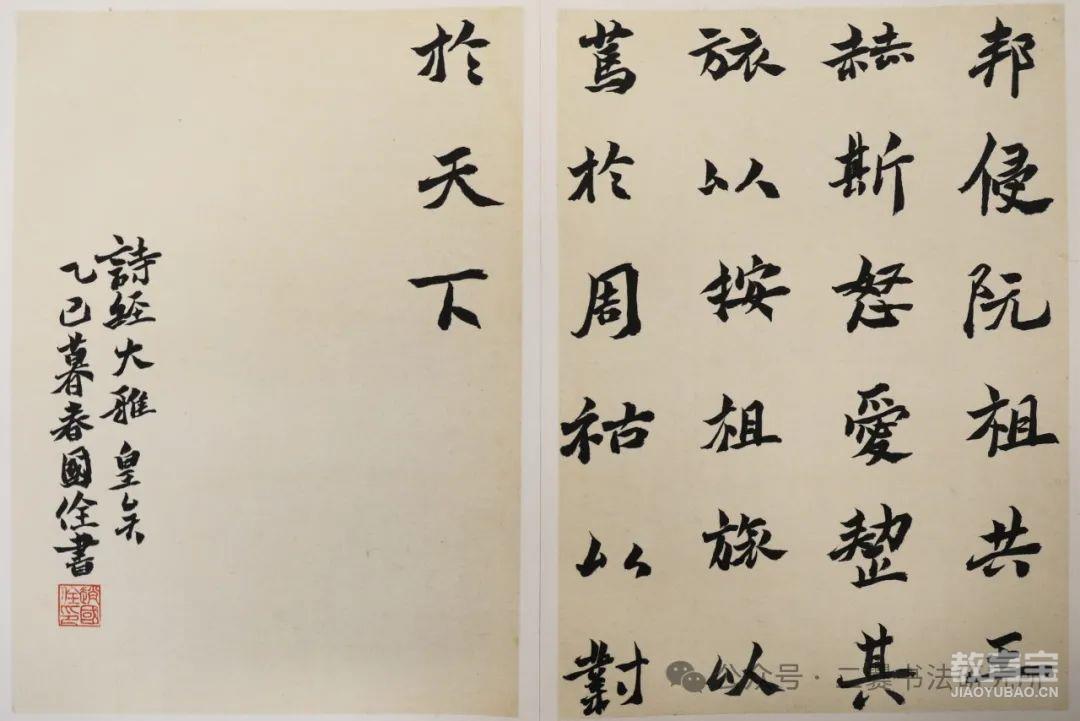 邦侵阮祖共王
赫斯怒愛整其
旅以按祖旅以
篤於周祜以對
於天下
詩經大雅 皇矣
乙巳暮春國佺書
趙國佺印
公众号 · 书法
教育宝
JIAOYUBAO.CN